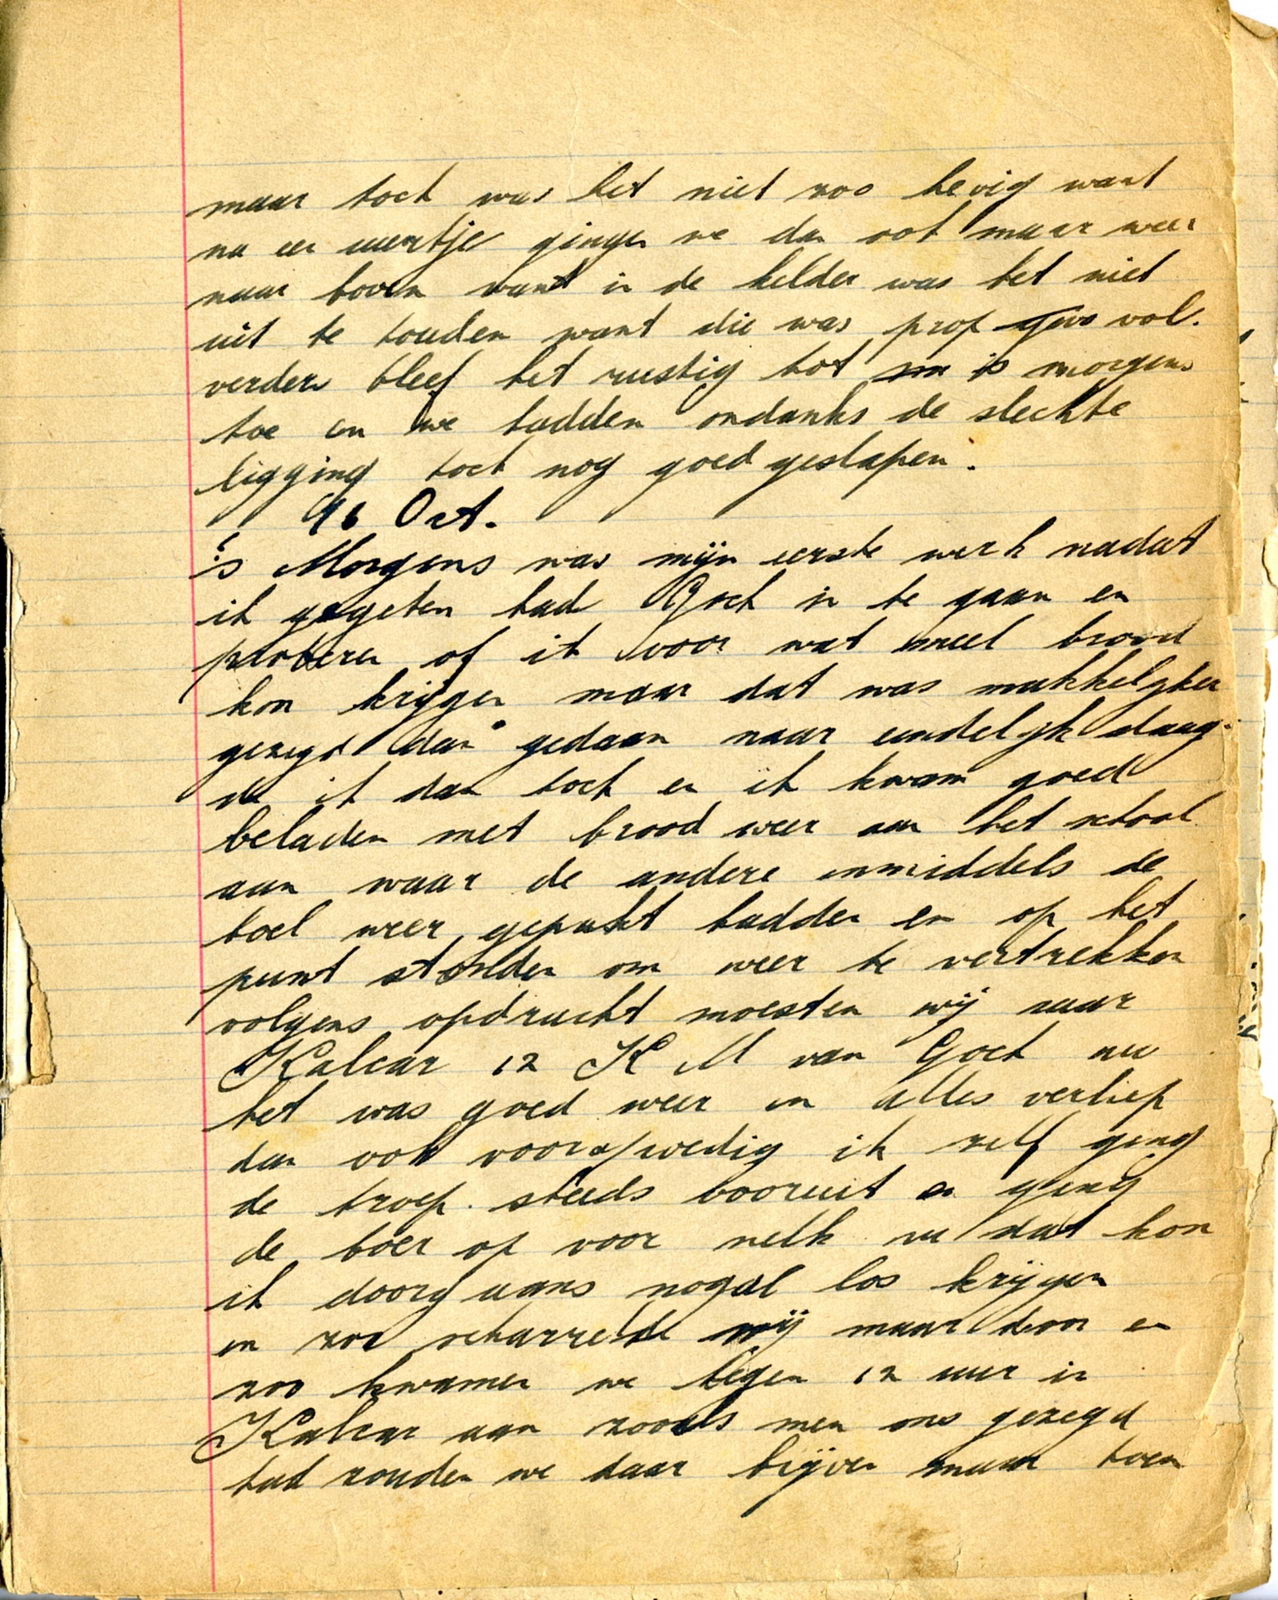 maar toch was het niet zoo hevig want
na een uurtje gingen we dan ook maar weer
naar boven want in de kelder was het niet
uit te houden want die was prop vol.
verders bleef het rustig tot 's morgens
toe en we hadden ondanks de slechte
ligging toch nog goed geslapen.
16 Oct.
's Morgens was mijn eerste werk nadat
ik gegeten had Goch in te gaan en
proberen of ik voor wat meel brood
kon krijgen maar dat was makkelijker
gezegt dan gedaan maar eindelijk slaag-
de ik dan toch en ik kwam goed
beladen met brood weer aan het school
aan waar de andere inmiddels de
boel weer gepakt hadden en op het
punt stonden om weer te vertrekken
volgens opdracht moesten wij naar
Kalcar 12 K M van Goch nu
het was goed weer en alles verliep
dan ook voorspoedig ik zelf ging
de troep steeds vooruit en ging
de boer op voor melk nu dat kon
ik doorgaans nogal los krijgen
en zoo scharrelde wij maar door en
zoo kwamen we tegen 12 uur in
Kalcar aan zooals men ons gezegd
had zouden we daar blijven maar toen